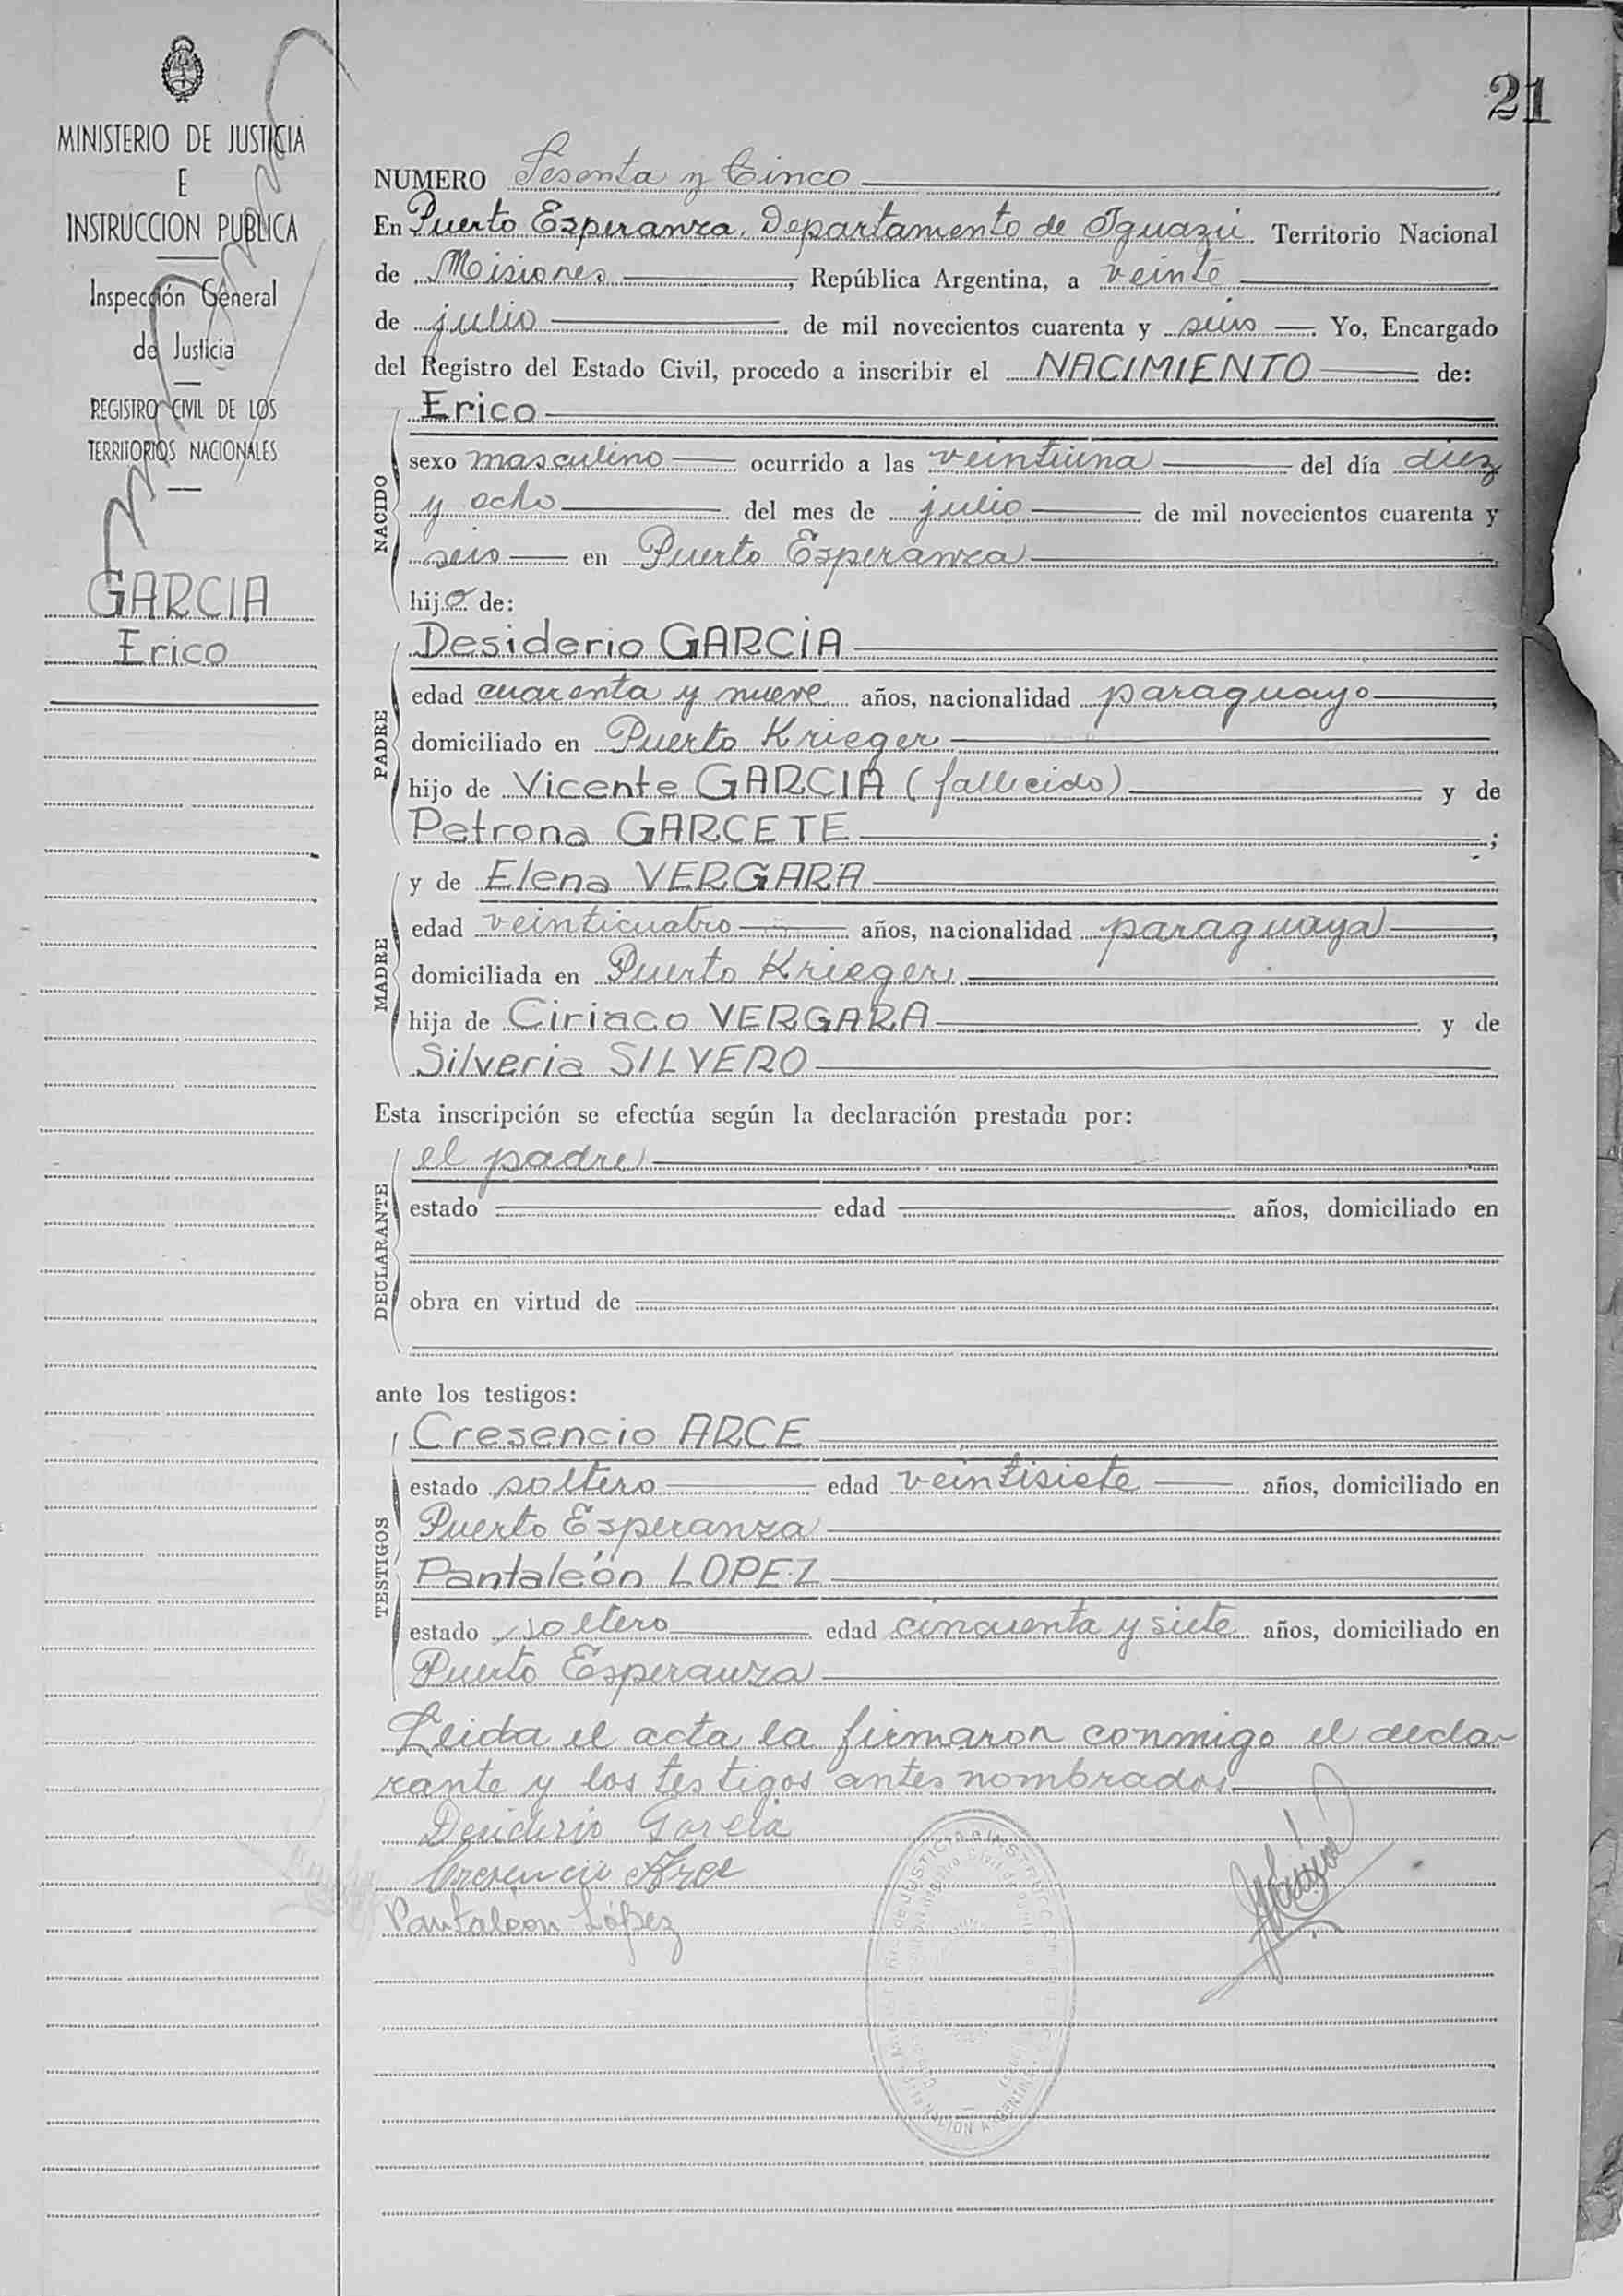 21
MINISTERIO DE JUSTICIA
E
INSTRUCCION PUBLICA
Inspección General
de Justicia
REGISTRO CIVIL DE LOS
TERRITORIOS NACIONALES
GARCIA
Erico
NUMERO Sesenta y Cinco
En Puerto Esperanza, Departamento de Iguazú Territorio Nacional
de Misiones, República Argentina, a veinte
de julio de mil novecientos cuarenta y seis Yo, Encargado
del Registro del Estado Civil, procedo a inscribir el NACIMIENTO de:
Erico
NACIDO
sexo masculino ocurrido a las veintiuna del día diez
y ocho del mes de julio de mil novecientos cuarenta y
seis en Puerto Esperanza
hijo de:
Desiderio GARCIA
PADRE
edad cuarenta y nueve años, nacionalidad paraguayo,
domiciliado en Puerto Krieger
hijo de Vicente GARCIA (fallecido) y de
Petrona GARCETE;
y de Elena VERGARA
MADRE
edad veinticuatro años, nacionalidad paraguaya,
domiciliada en Puerto Krieger
hija de Ciriaco VERGARA y de
Silveria SILVERO
Esta inscripción se efectúa según la declaración prestada por:
el padre
DECLARANTE
estado edad años, domiciliado en
obra en virtud de
ante los testigos:
Cresencio ARCE
TESTIGOS
estado soltero edad veintisiete años, domiciliado en
Puerto Esperanza
Pantaleón LOPEZ
estado soltero edad cincuenta y siete años, domiciliado en
Puerto Esperanza
Leida el acta la firmaron conmigo el decla-
rante y los testigos antes nombrados
Desiderio Garcia
Cresencio Arce
Pantaleon López